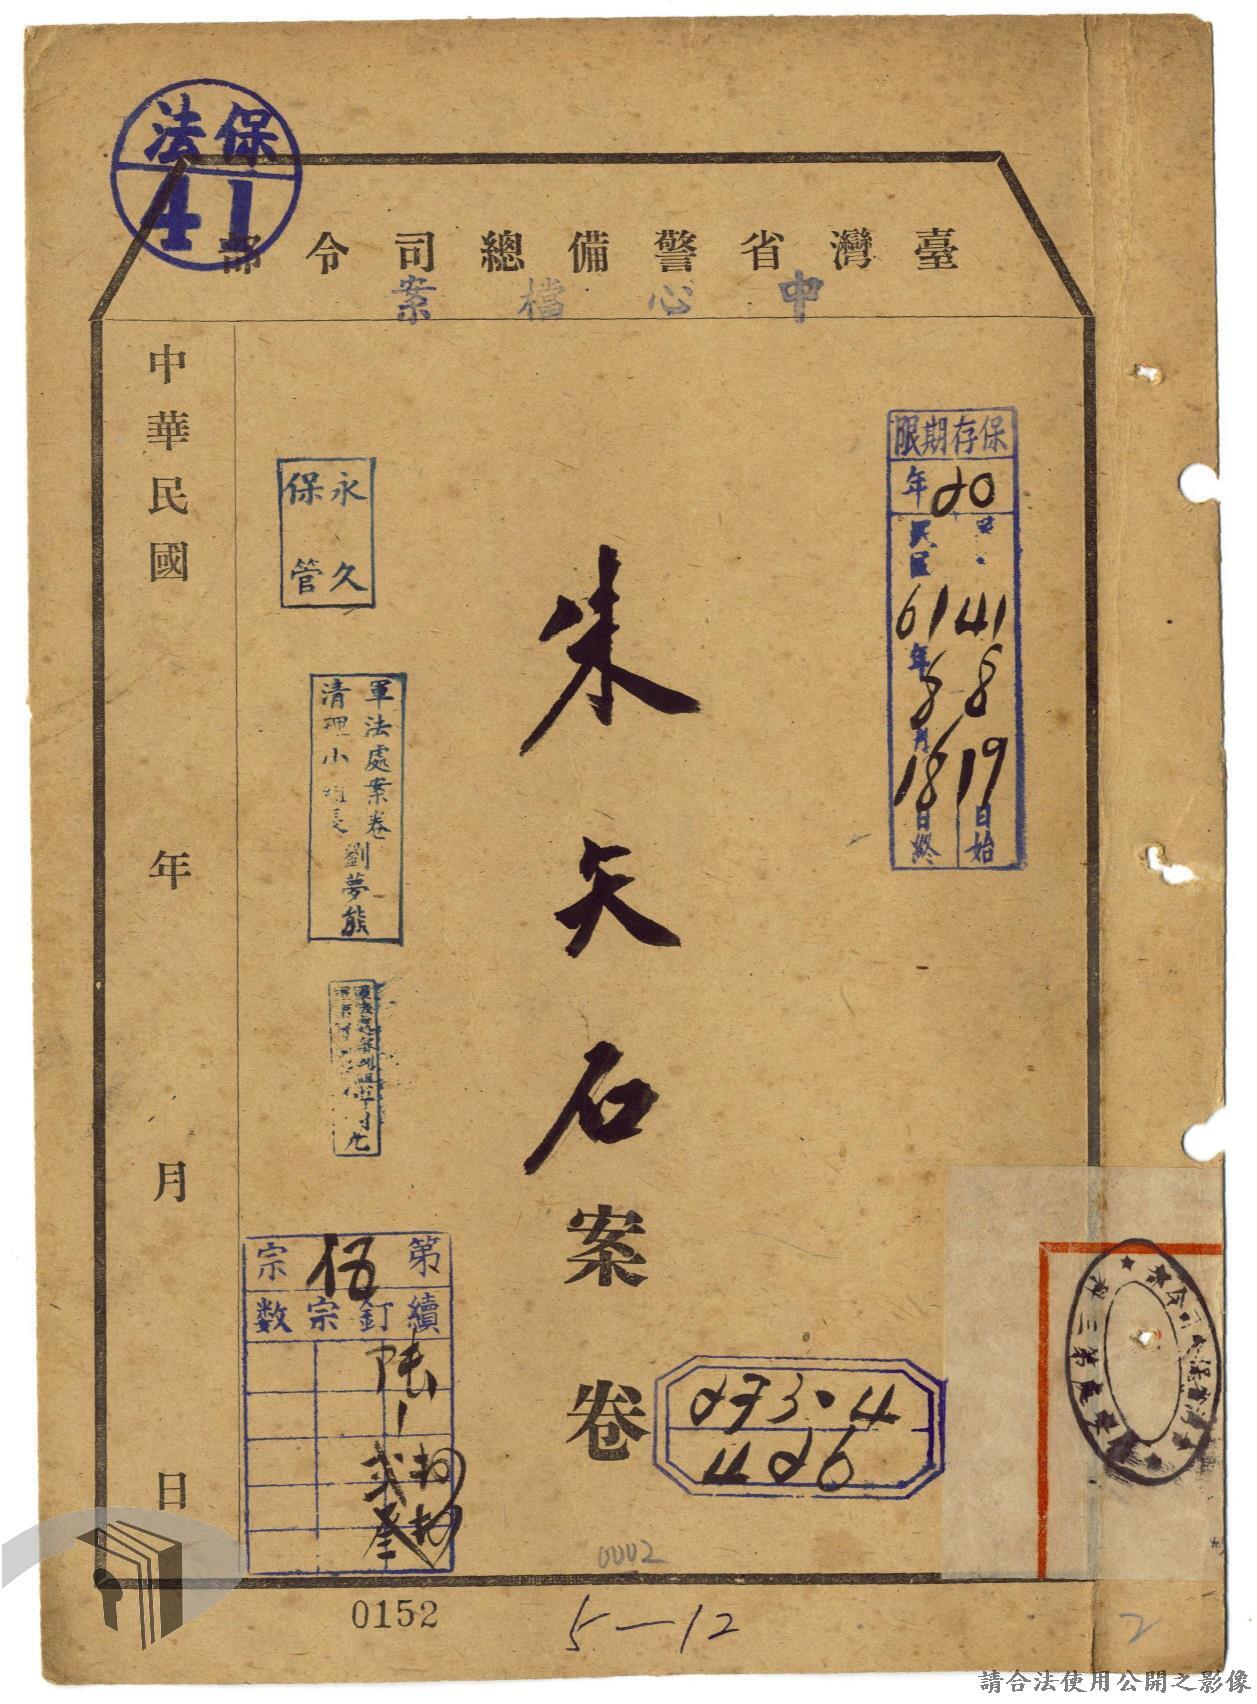 保法
41
臺灣省警備總司令部
中心檔案
保存期限
20年
民國
41 8 19日始
61年8月18日終
朱天石案卷
永久保管
軍法處案卷
清理小組長劉夢熊
第伍宗
續釘宗數
273.4
1126
中華民國 年 月 日
0002
0152
5-12
2
請合法使用公開之影像